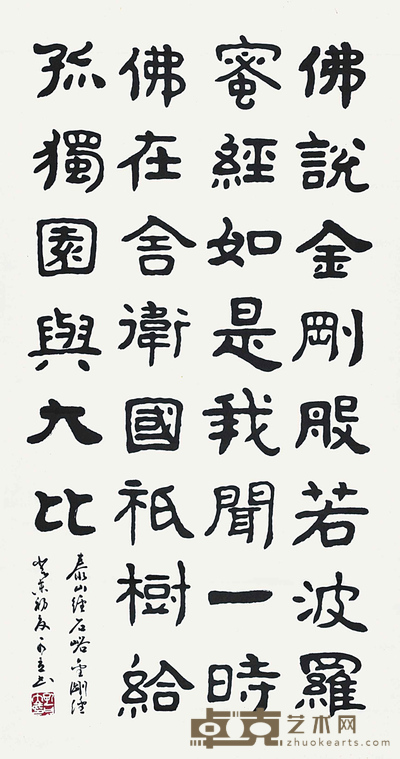 佛說金剛般若波羅
蜜經如是我聞一時
佛在舍衛國祇樹給
孤獨園與大比
泰山經石峪金剛經
癸未初夏
卓克艺术网
zhuokearts.com